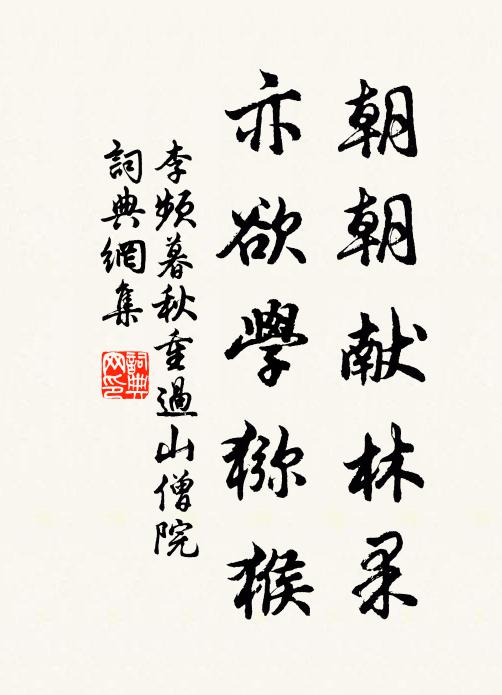 朝朝献林果
亦欲學猕猴
李频暮秋重過山僧院
詞典網集
詞典网印